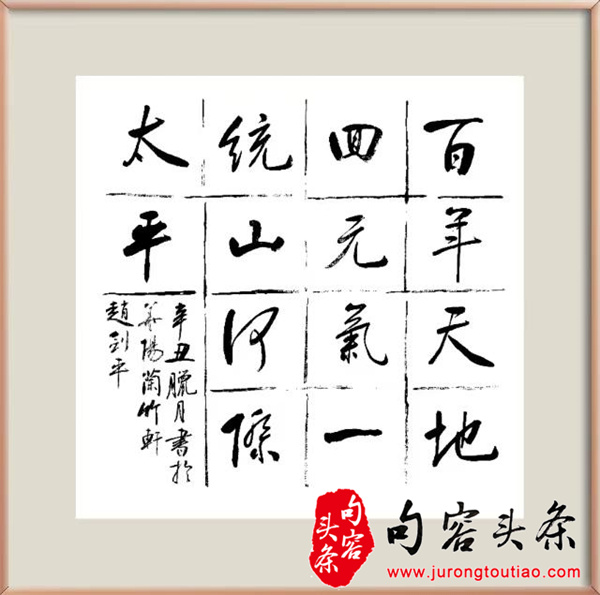 百年天地
回元氣一
统山河際
太平
辛丑臘月書於
華陽蘭竹軒
趙剑平
句容
头条
句容头条
www.jurongtoutiao.com